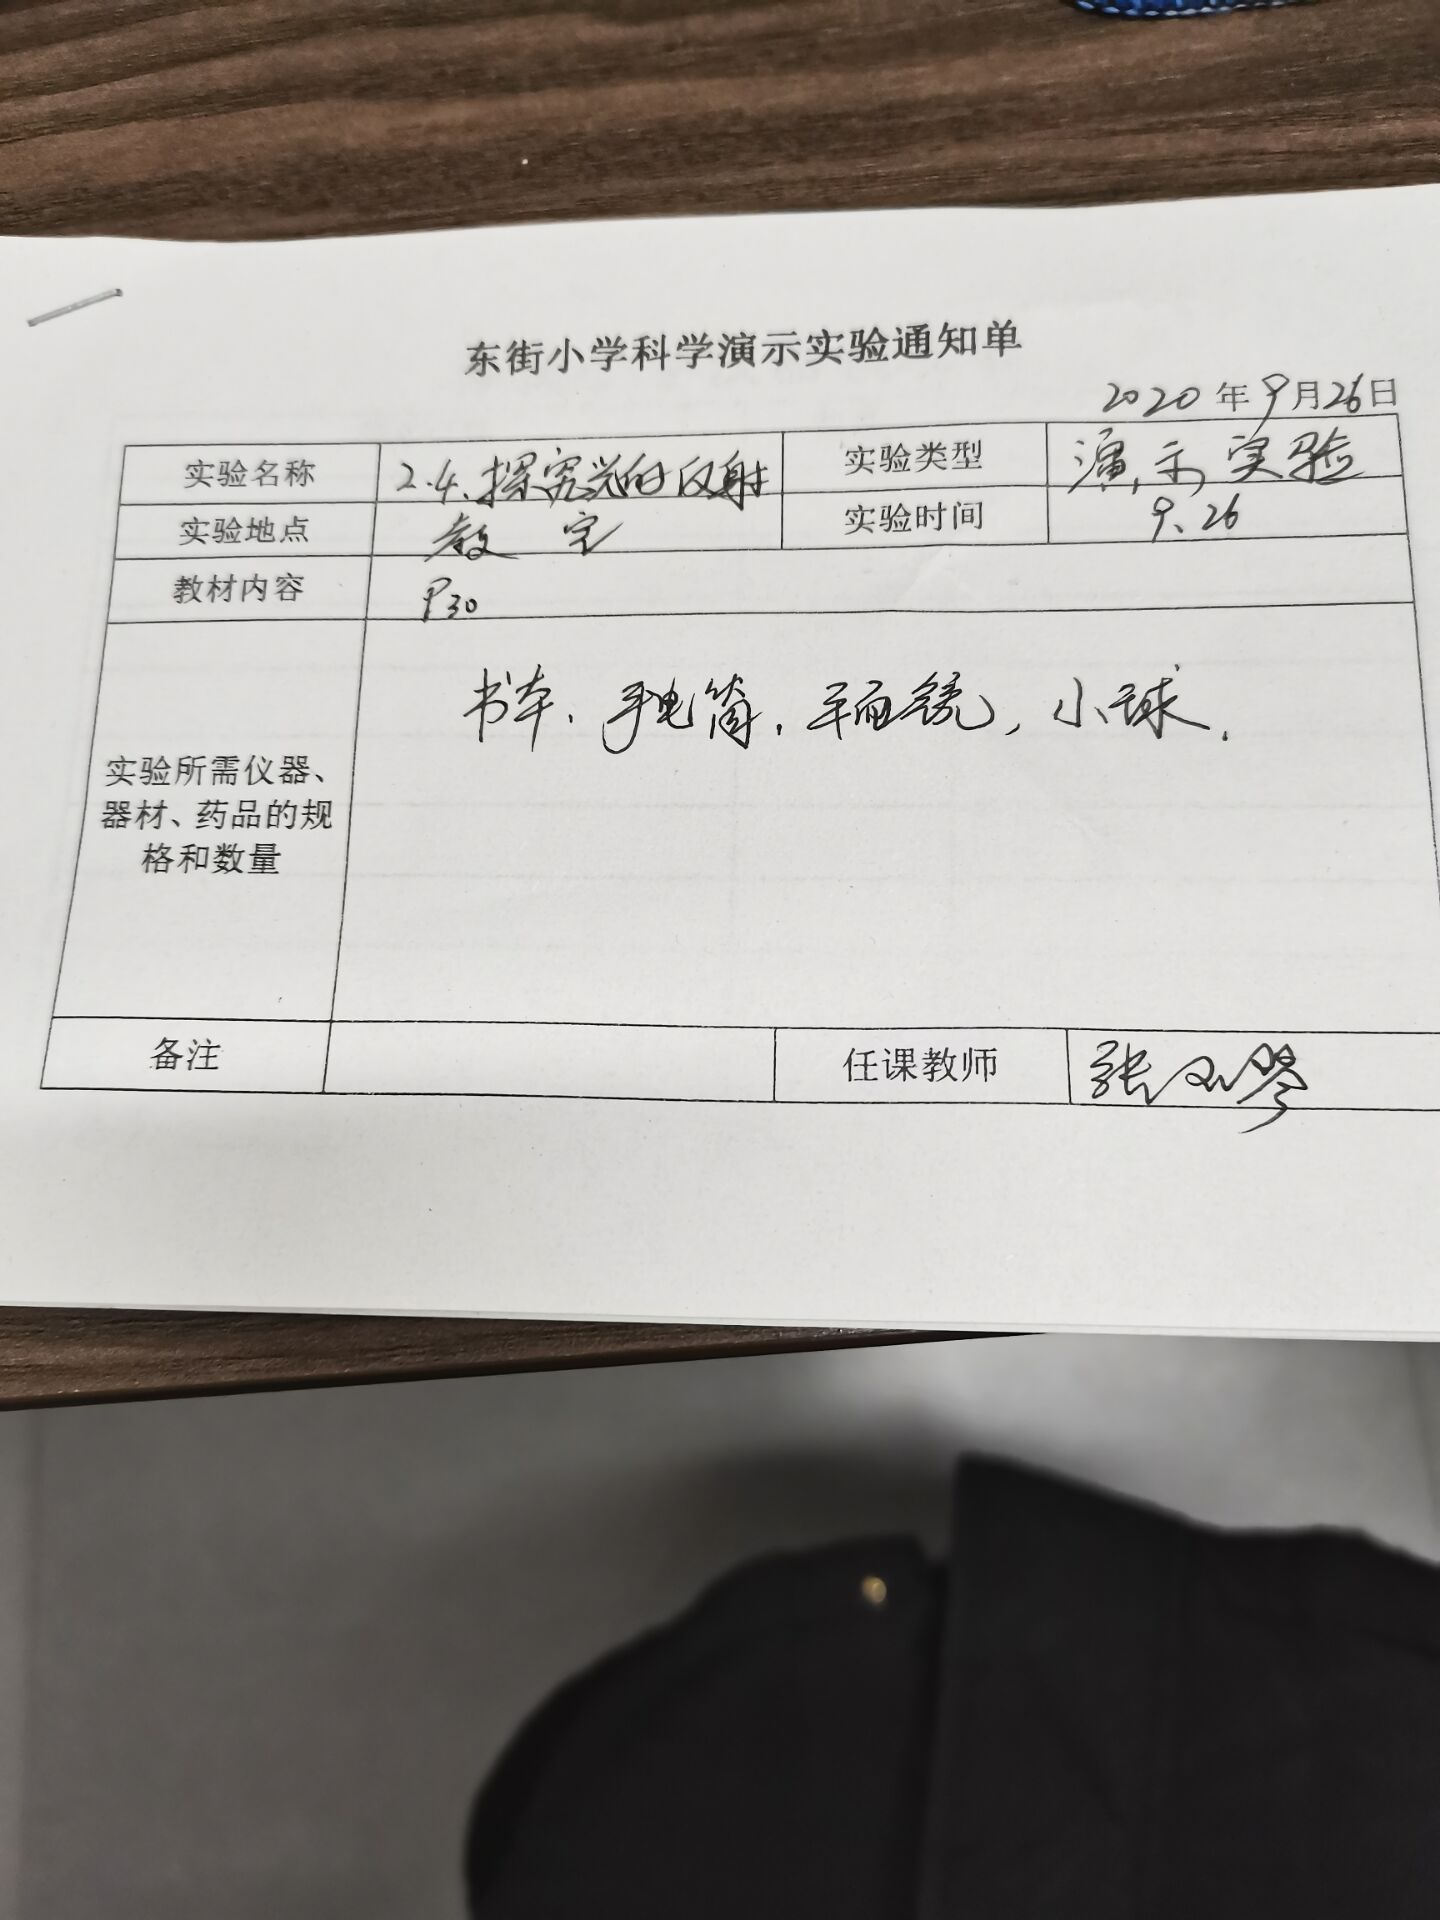 东街小学科学演示实验通知单
2020年9月26日
实验名称 2.4、探究光的反射 实验类型 演示实验
实验地点 教室 实验时间 9、26
教材内容 P30
书本、手电筒、平面镜，小球.
实验所需仪器、
器材、药品的规
格和数量
备注 任课教师 张